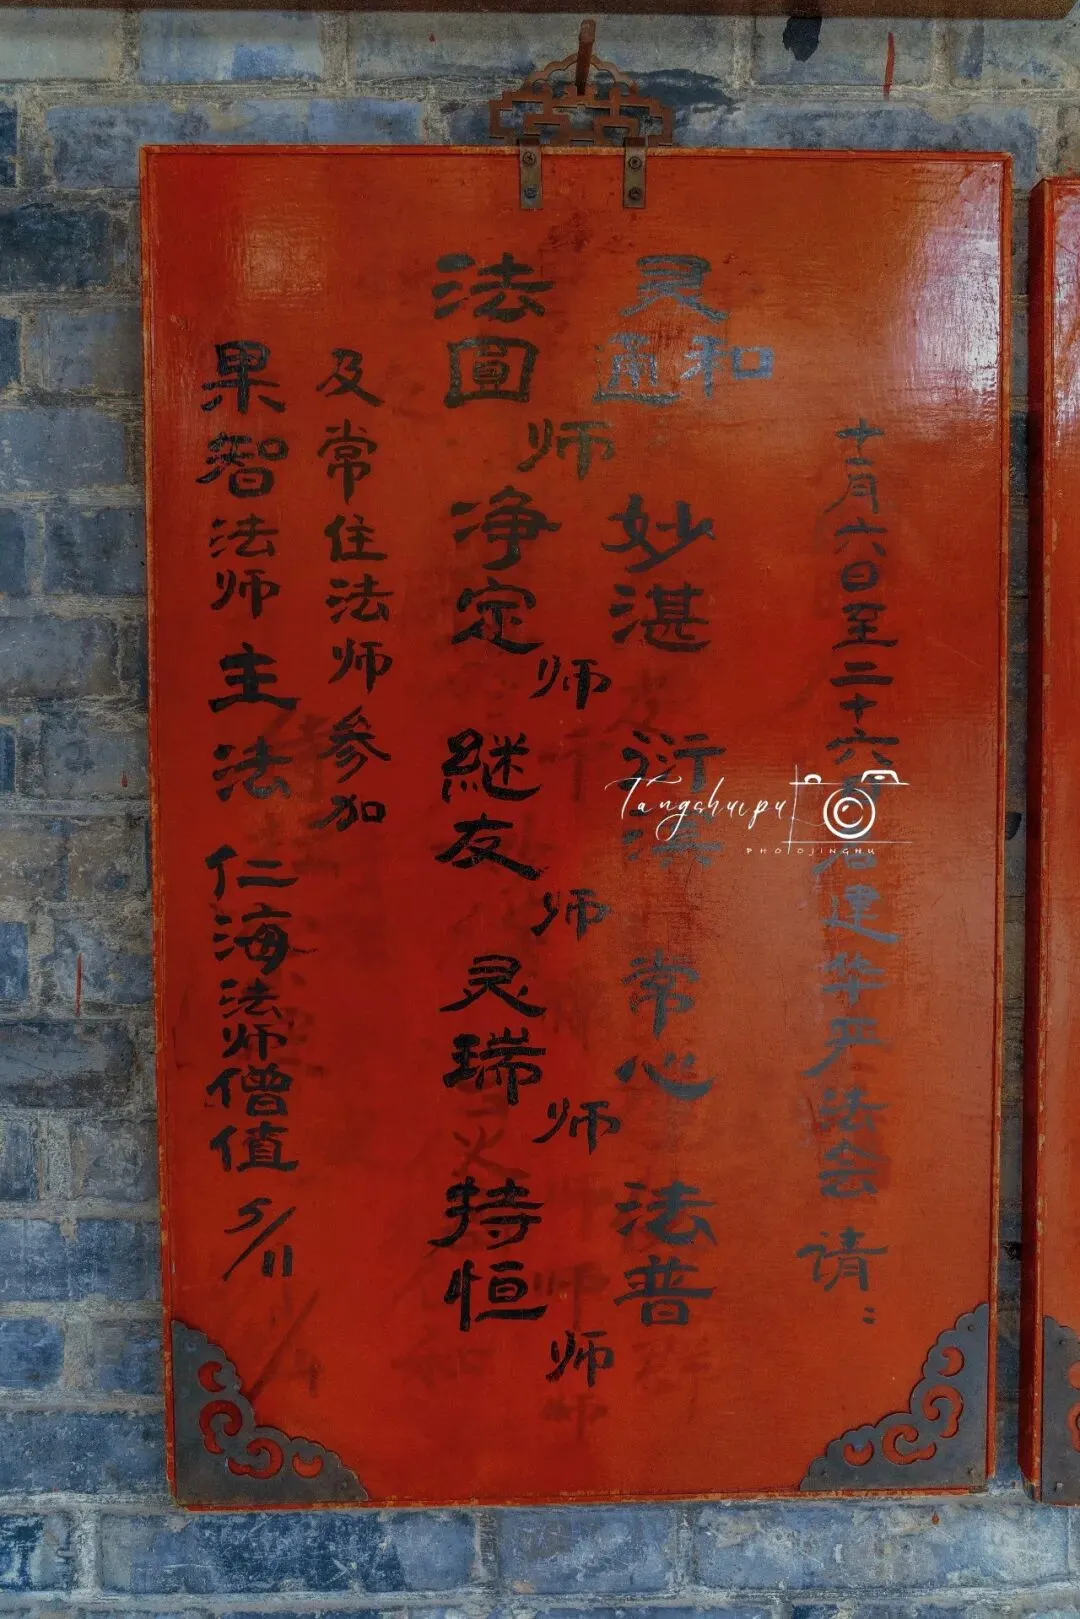 十一月六日至二十六日启建华严法会 请：
灵通和 妙湛 衍 常心 法普
师 师 师 师 师
法圆 净定 继友 灵瑞 持恒
及常住法师参加
果智法师主法 仁海法师僧值 5/11
Tangshuipu
PHOTOJINGHU